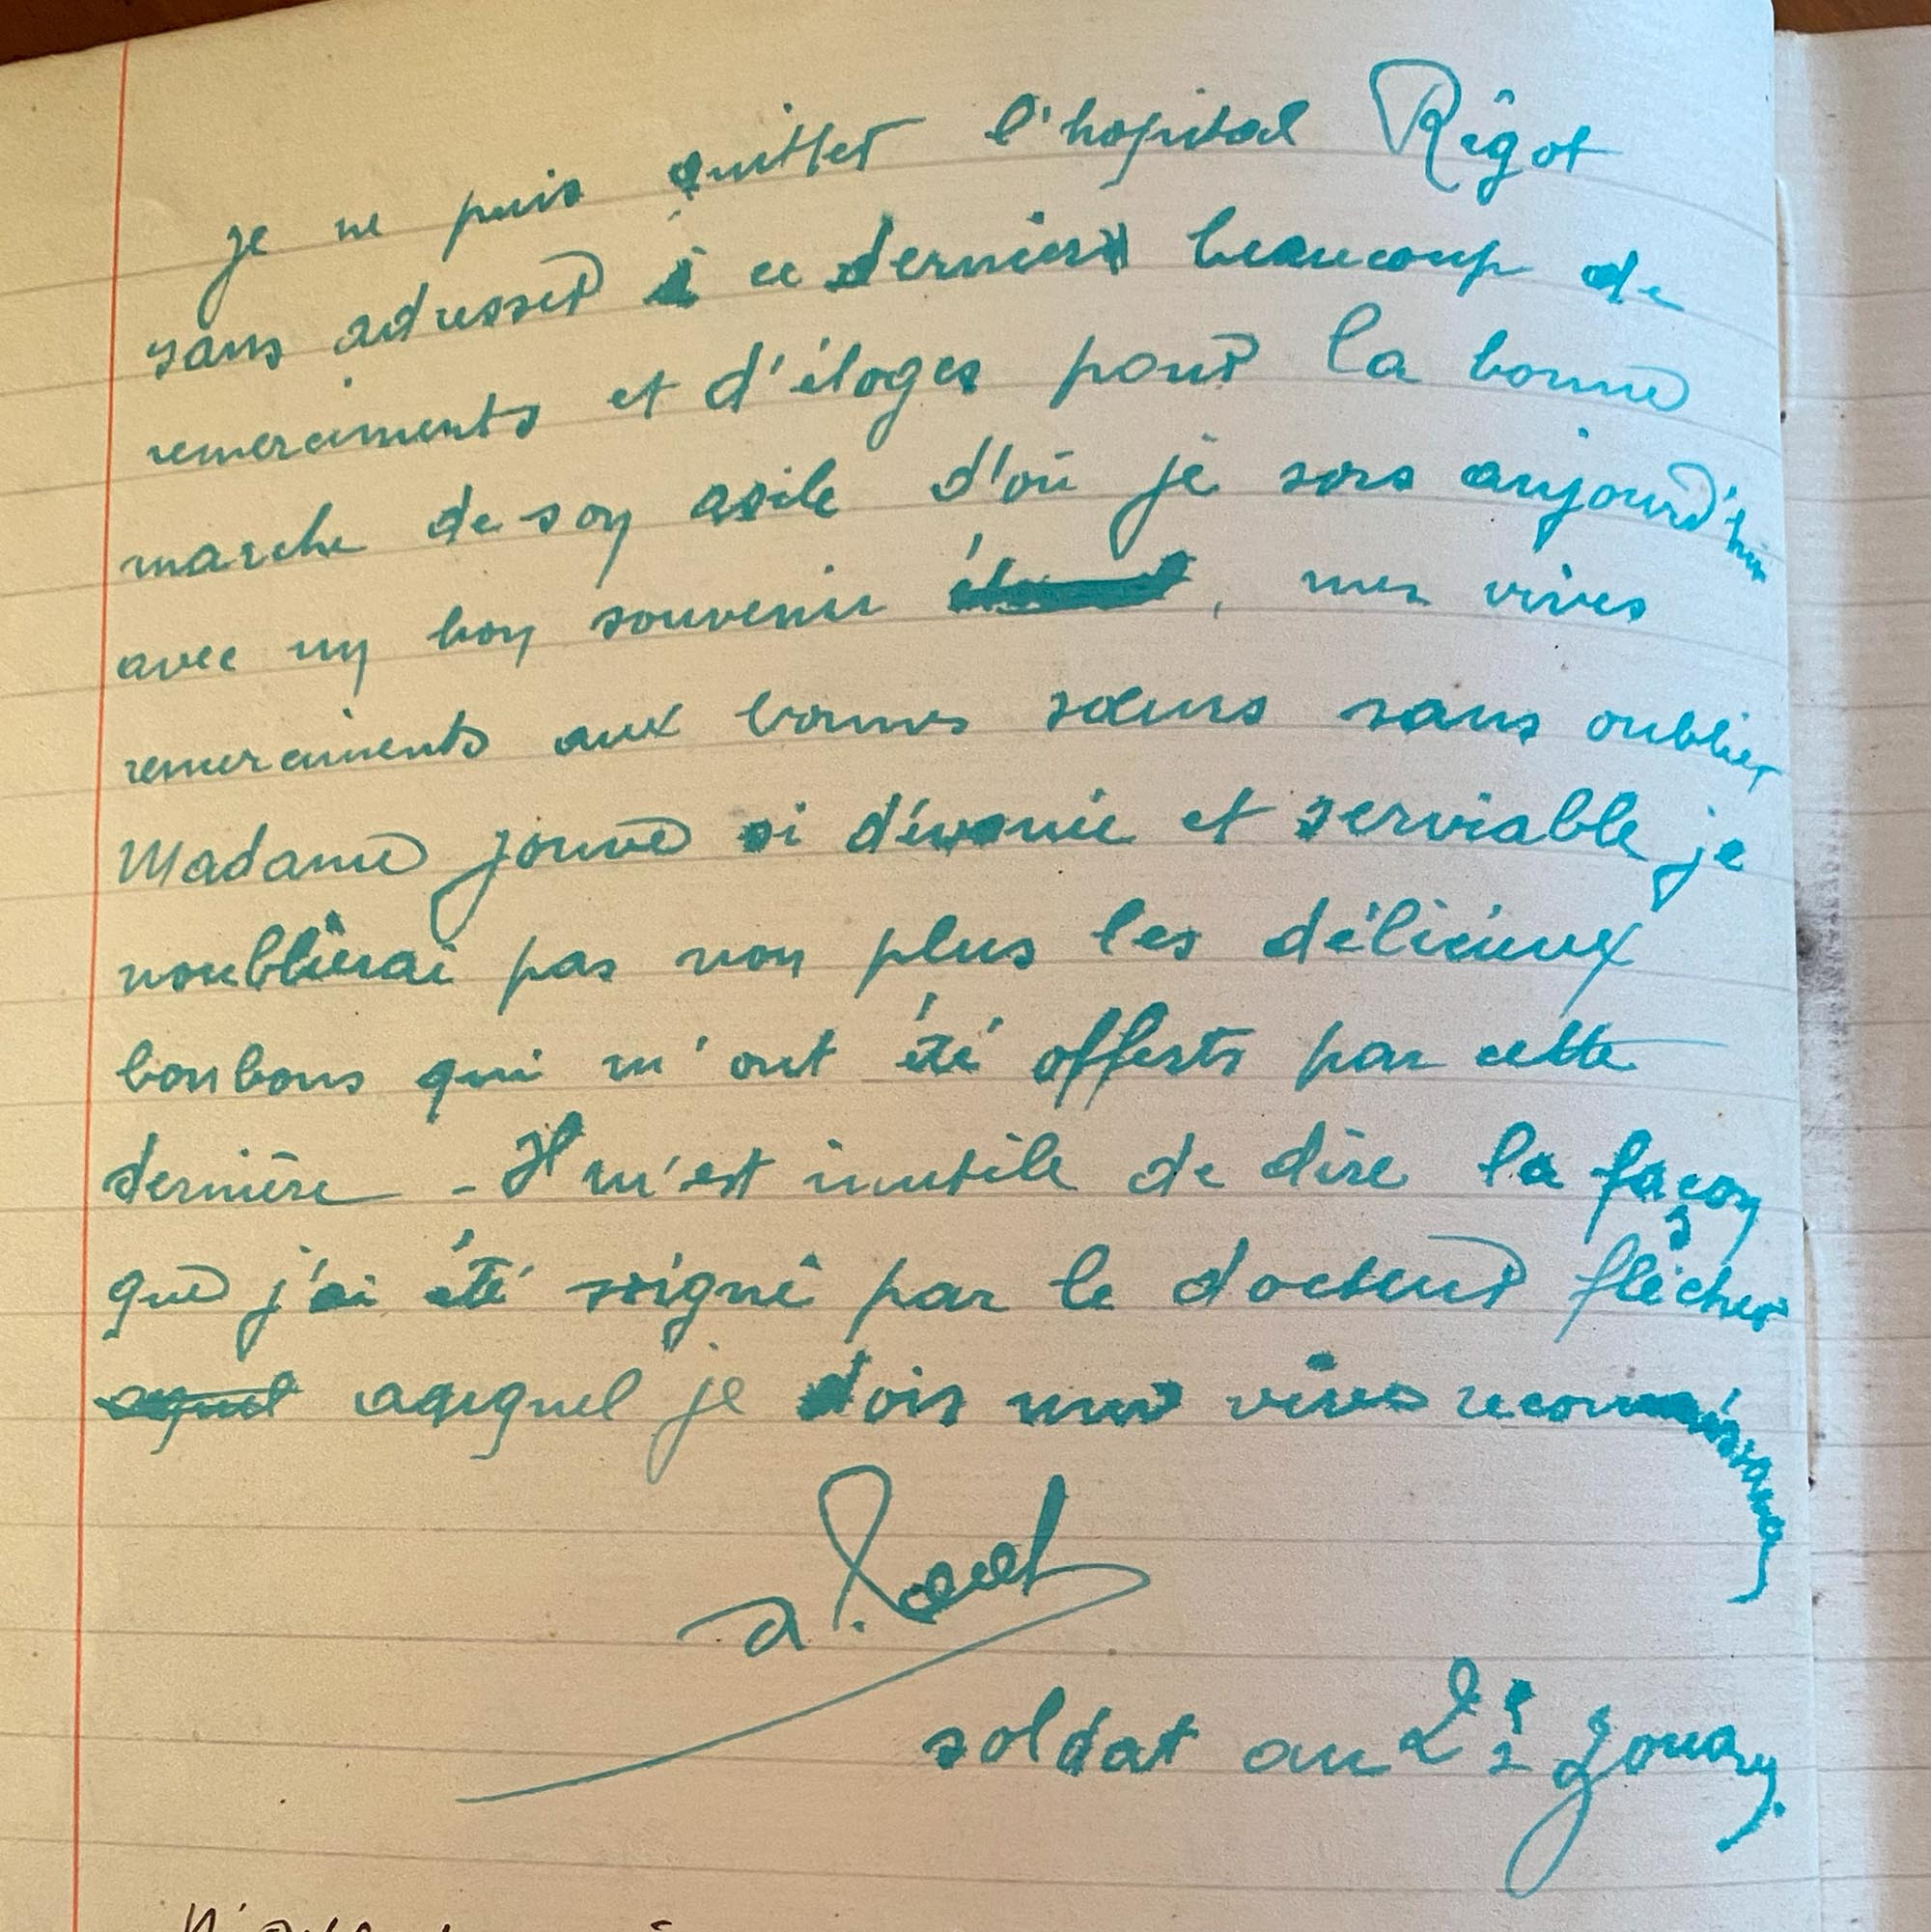 je ne puis quitter l'hopital Rigot
sans adresser à ce dernier beaucoup de
remerciments et d'éloges pour la bonne
marche de son asile d'où je sors aujourd'hui
avec un bon souvenir , mes vives
remerciments aux bonnes sœurs sans oublier
Madame jouve si dévouée et serviable je
noublierai pas non plus les délicieux
bonbons qui m'ont été offerts par cette
dernière - Il m'est inutile de dire la façon
que j'ai été soigné par le docteur flécher
auquel je dois une vives reconnaissance
a.
soldat au 2e zouaves